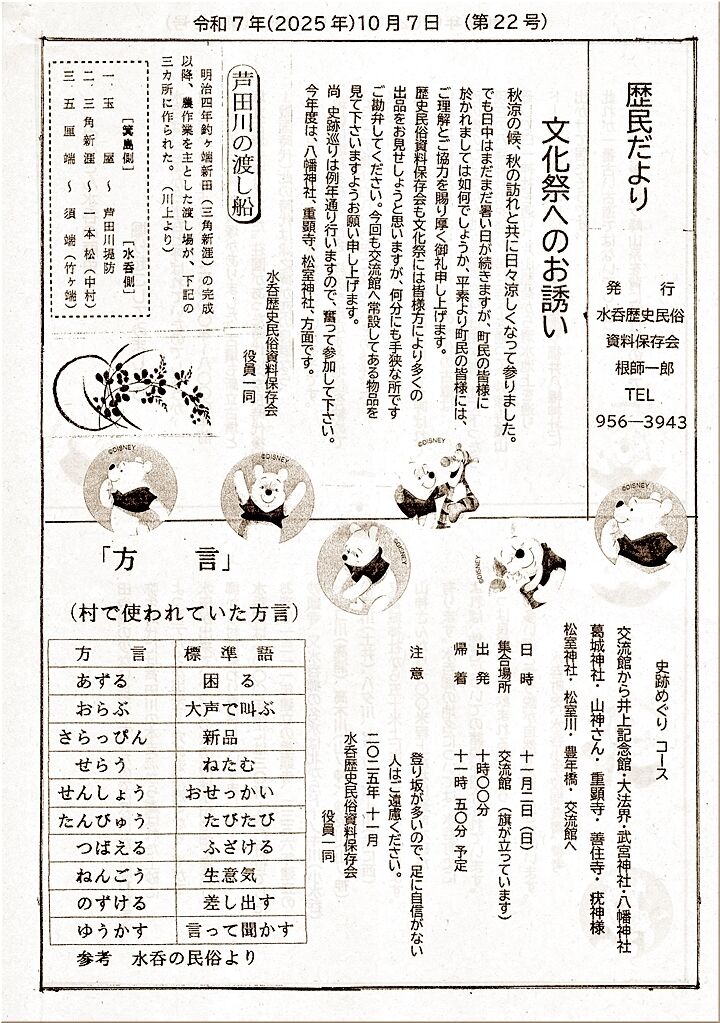 令和７年(2025年)10月7日　(第22号)
歴民だより
発　行
水呑歴史民俗
資料保存会
根師一郎
TEL
956―3943
文化祭へのお誘い
秋涼の候、秋の訪れと共に日々涼しくなって参りました。
でも日中はまだまだ暑い日が続きますが、町民の皆様に
於かれましては如何でしょうか、平素より町民の皆様には、
ご理解とご協力を賜り厚く御礼申し上げます。
歴史民俗資料保存会も文化祭には皆様方により多くの
出品をお見せしょうと思いますが、何分にも手狭な所です
ご勘弁してください。今回も交流館へ常設してある物品を
見て下さいますようお願い申し上げます。
尚　史跡巡りは例年通り行いますので、奮って参加して下さい。
今年度は、八幡神社、重顕寺、松室神社、方面です。
水呑歴史民俗資料保存会
役員一同
芦田川の渡し船
明治四年釣ヶ端新田（三角新涯）の完成
以降、農作業を主とした渡し場が、下記の
三カ所に作られた。（川上より）
［箕島側］　　［水呑側］
一．玉　　屋　～　芦田川堤防
二．三角新涯　～　一本松（中村）
三．五厘端　～　須　端（竹ヶ端）
©DISNEY
©DISNEY
©DISNEY
©DISNEY
©DISNEY
©DISNEY
史跡めぐり　コース
交流館から井上記念館・大法界・武宮神社・八幡神社
葛城神社・山神さん・重顕寺・善住寺・疣神様
松室神社・松室川・豊年橋・交流館へ
日　時　　十一月二日（日）
集合場所　交流館　（旗が立っています）
出　発　　十時〇〇分
帰　着　　十一時　五〇分　予定
注　意　　登り坂が多いので、足に自信がない
人はご遠慮ください。
二〇二五年　十一月
水呑歴史民俗資料保存会
役員一同
「方　言」
（村で使われていた方言）
方　言　標準語
あずる　困る
おらぶ　大声で叫ぶ
さらっぴん　新品
せらう　ねたむ
せんしょう　おせっかい
たんびゅう　たびたび
つばえる　ふざける
ねんごう　生意気
のずける　差し出す
ゆうかす　言って聞かす
参考　水呑の民俗より